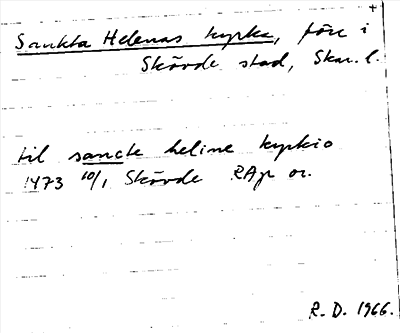 Sankta Helenas kyrka, förr i
Skövde stad, Skar. l.
til sancte heline kyrkio
1473 10/1 Skövde RAp or.
R. D. 1966.